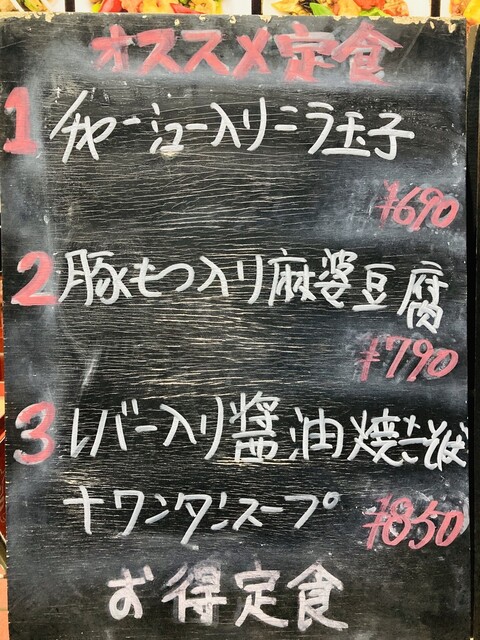 オススメ定食
1 チャーシュー入りニラ玉子
¥690
2 豚もつ入り麻婆豆腐
¥790
3 レバー入り醤油焼そば
+ワンタンスープ ¥850
お得定食